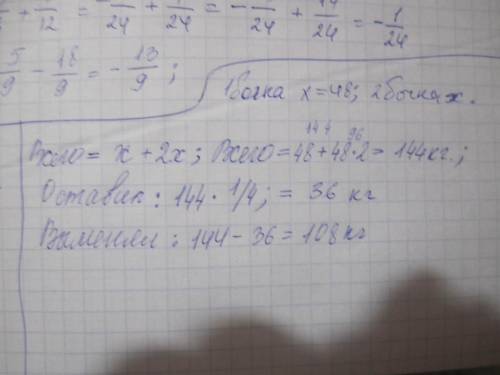 + /12 = /24 + /24 = - /24 + /24 = -1/24
5/9 - 18/9 = -13/9;
1 бочка x=48; 2 бочка x.
Всего = x + 2x; Всего = 48 + 48·2 = 144кг.;
144 96
Оставил: 144 · 1/4; = 36 кг
Выменял: 144 - 36 = 108кг